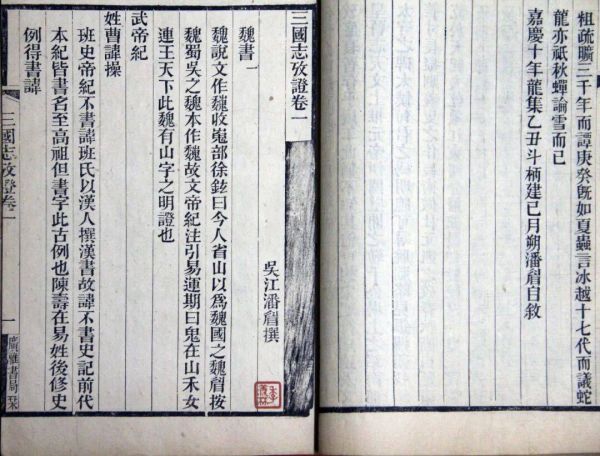 粗疏曠三千年而譚庚癸旣如夏蟲言冰越十七代而議蛇
龍亦祇秋蟬論雪而已
嘉慶十年龍集乙丑斗柄建巳月朔潘眉自敘
三國志攷證卷一
吳江潘眉撰
魏書一
魏說文作巍收嵬部徐鉉曰今人省山以爲魏國之魏眉按
魏蜀吳之魏本作巍故文帝紀注引易運期曰鬼在山禾女
連王天下此魏有山字之明證也
武帝紀
姓曹諱操
班史帝紀不書諱班氏以漢人撰漢書故諱不書史記前代
本紀皆書名至高祖但書字此古例也陳壽在易姓後修史
例得書諱
三國志攷證卷一
一
廣雅書局栞